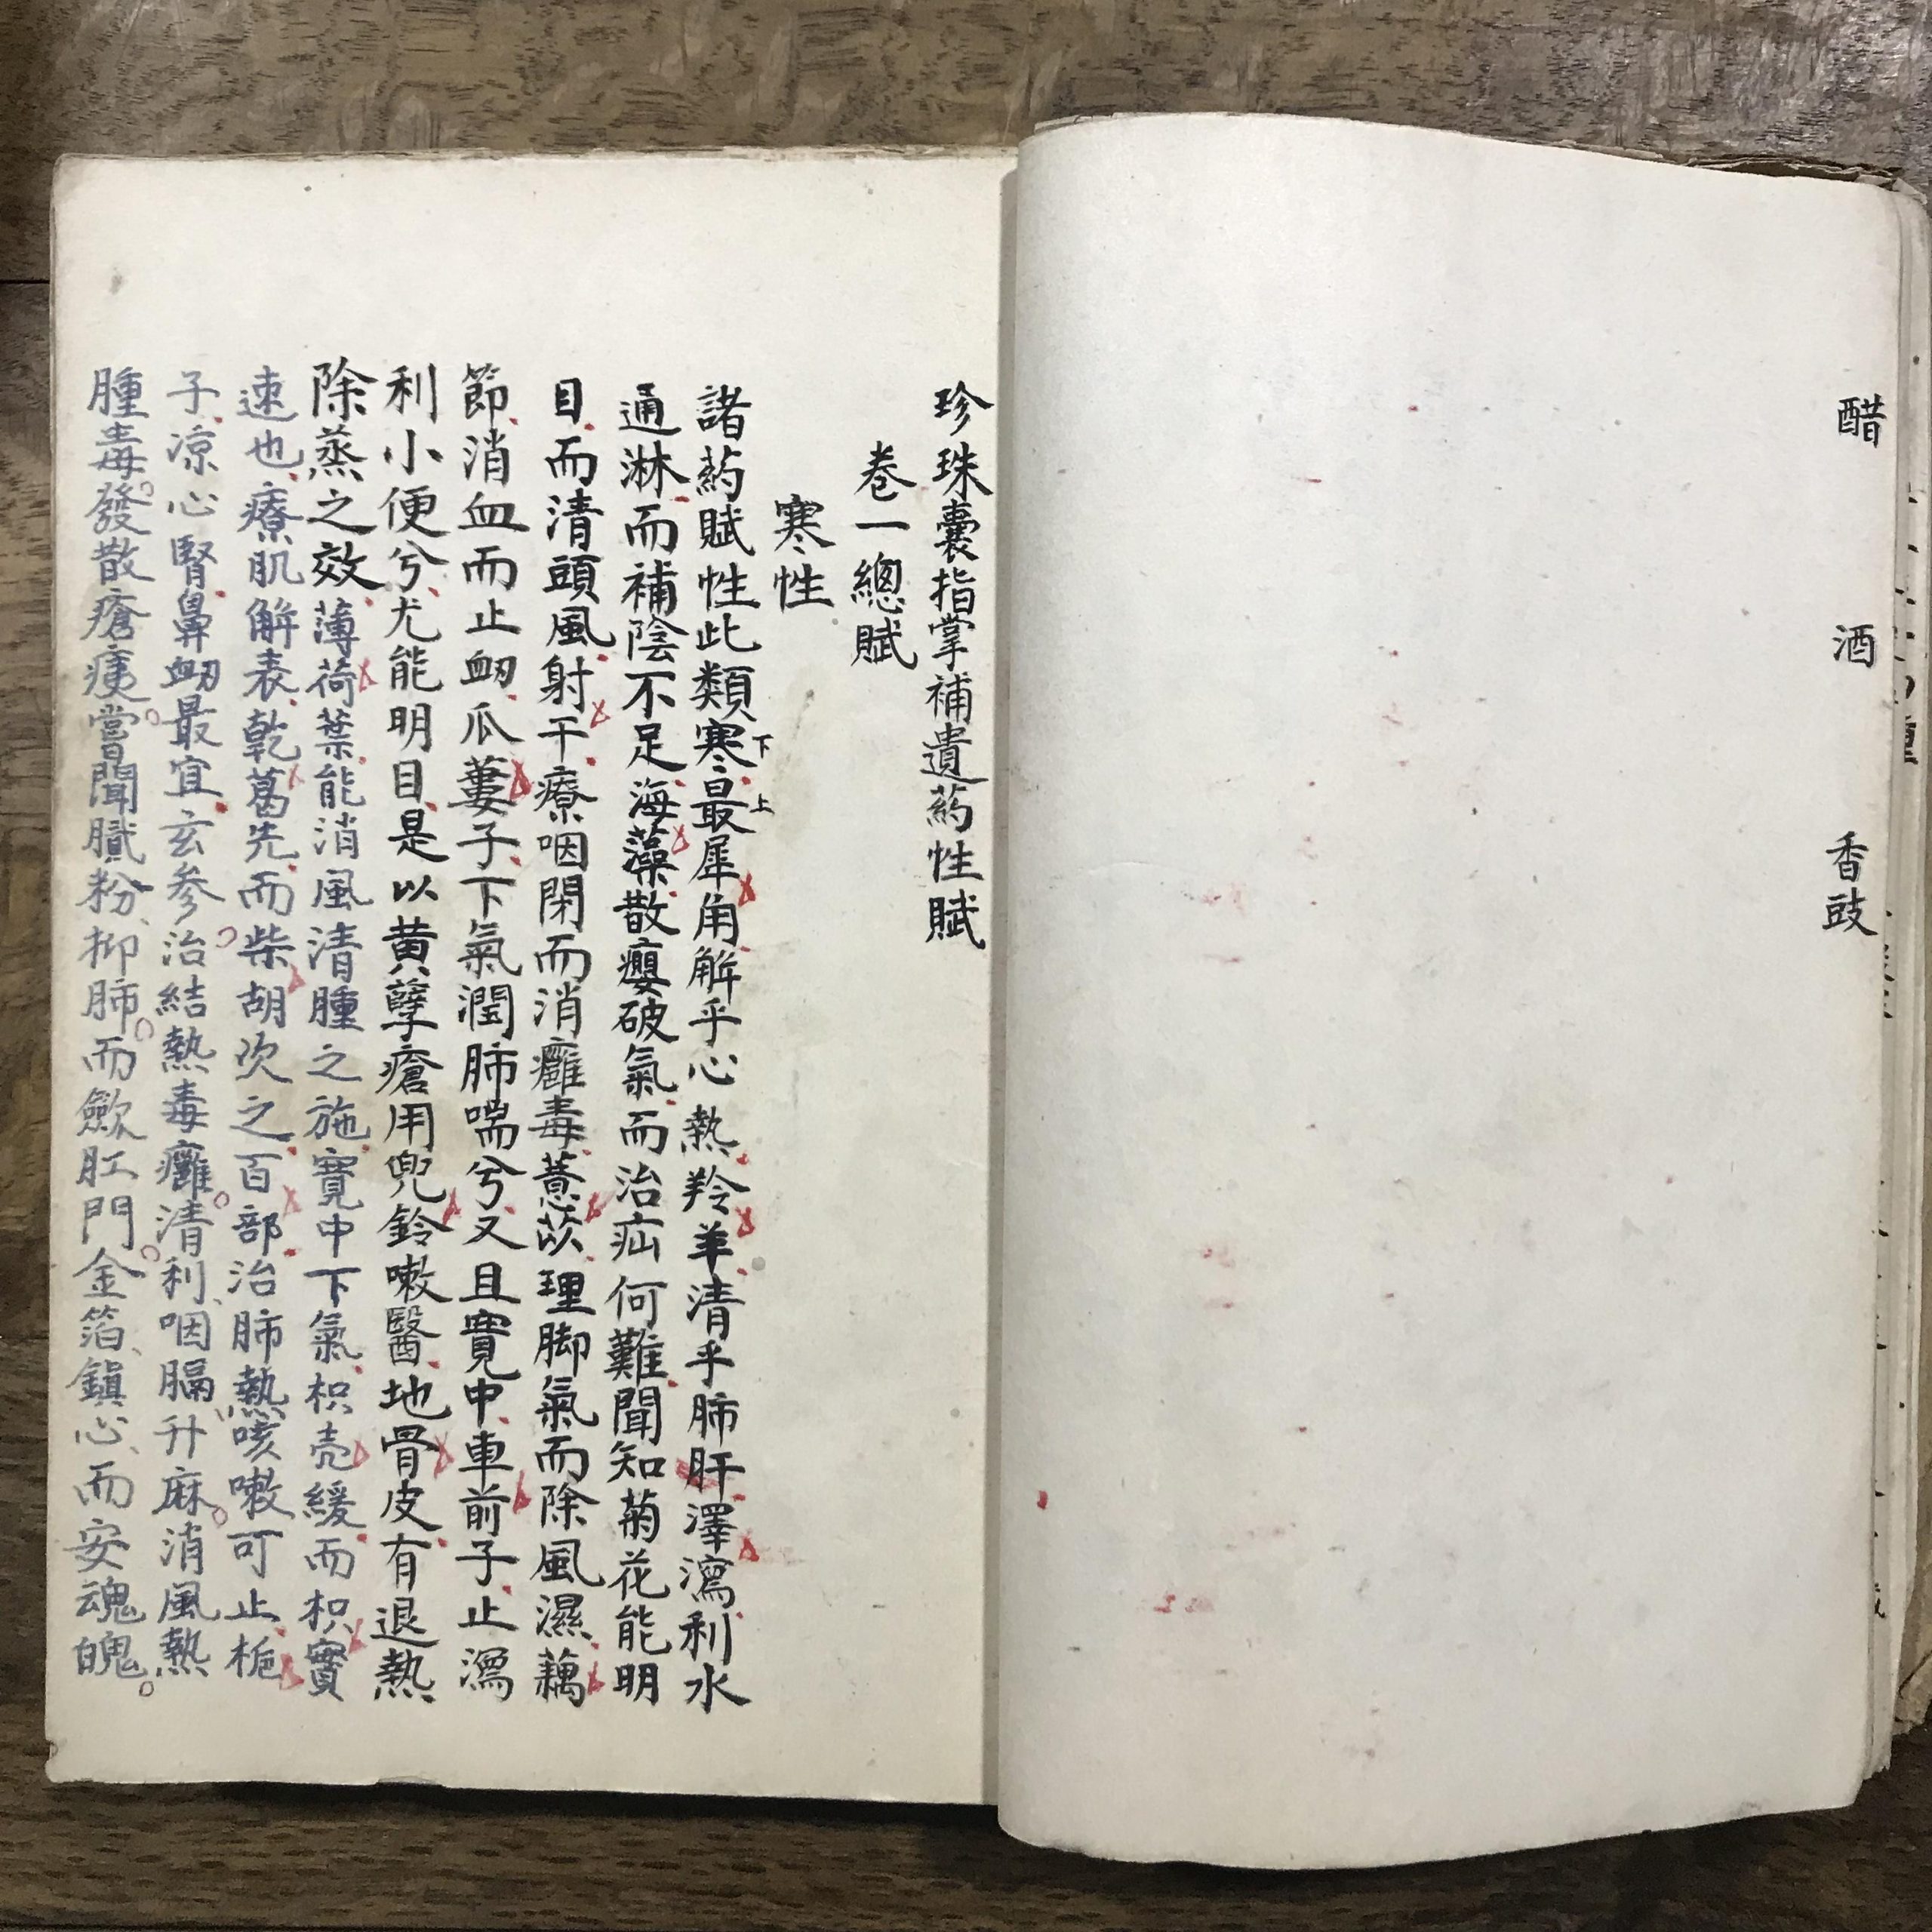 醋　酒　香豉
珍珠囊指掌補遺葯性賦
卷一總賦
寒性
諸葯賦性此類寒最犀角解乎心熱羚羊清乎肺肝澤瀉利水
下
上
通淋而補陰不足海藻散癭破氣而治疝何難聞知菊花能明
目而清頭風射干療咽閉而消癰毒薏苡理脚氣而除風濕藕
節消血而止衂瓜蔞子下氣潤肺喘兮又且寬中車前子止瀉
利小便兮尤能明目是以黄孽瘡用兜鈴嗽醫地骨皮有退熱
除蒸之效薄荷葉能消風清腫之施寬中下氣枳壳緩而枳實
速也療肌解表乾葛先而柴胡次之百部治肺熱咳嗽可止栀
子凉心腎鼻衂最宜玄参治結熱毒癰清利咽膈升麻消風熱
腫毒發散瘡痍嘗聞膩粉抑肺而歛肛門金箔鎮心而安魂魄